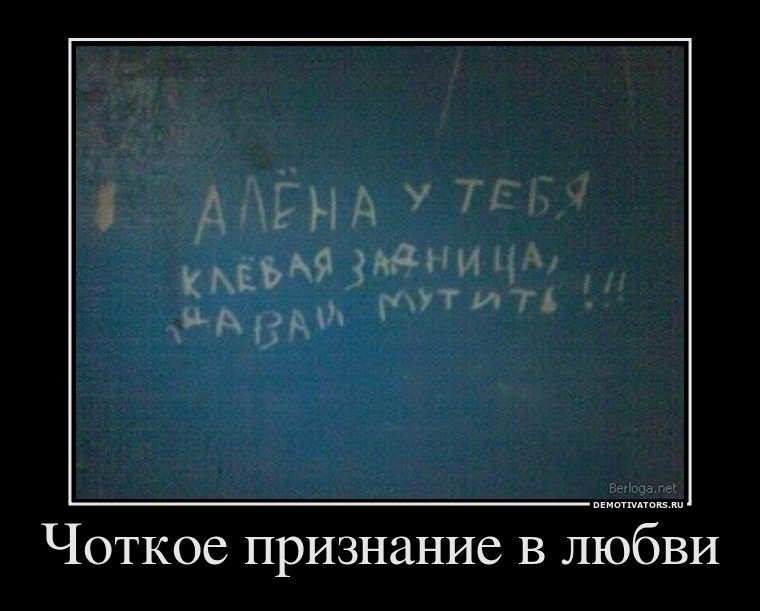 АЛЁНА У ТЕБЯ
КЛЁВАЯ ЗАДНИЦА,
ДАВАЙ МУТИТЬ!!!
Berloga.net
DEMOTIVATORS.RU
Чоткое признание в любви